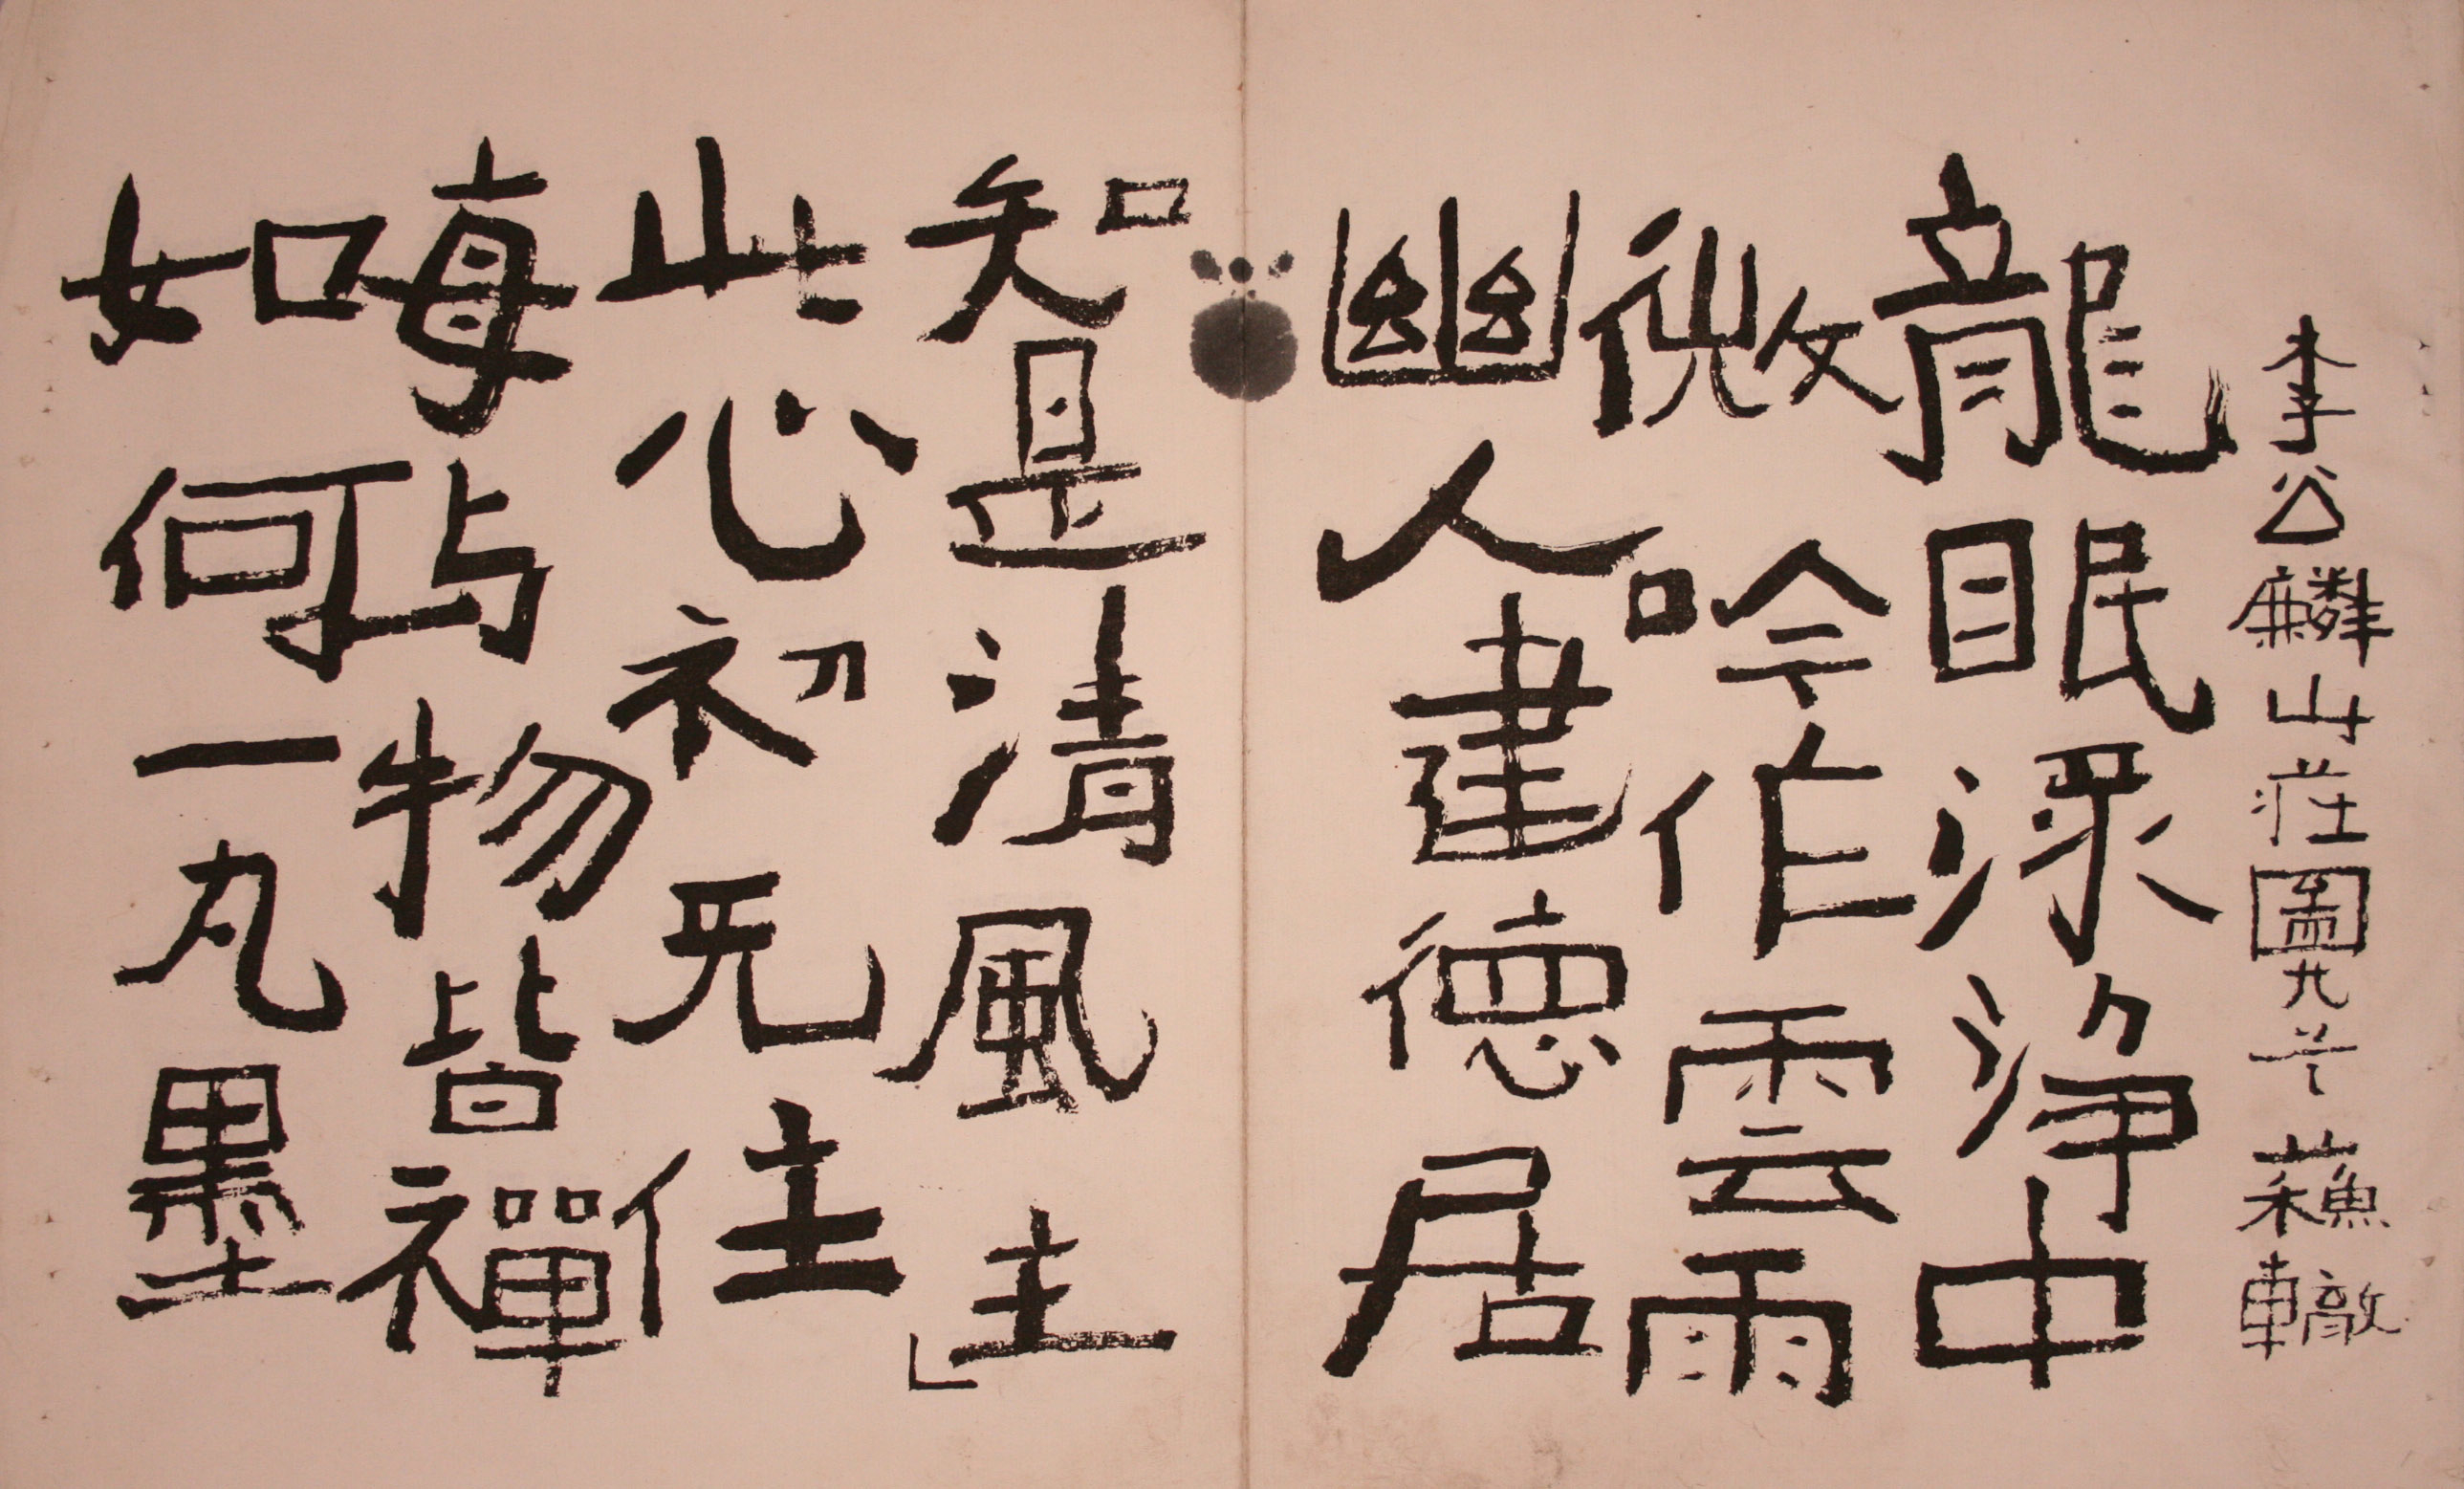 李公麟山莊圖 蘇轍
龍眠渌浄中
微吟作雲雨
幽人建德居
知是清風主」
此心初无住
每与物皆禪
如何一丸墨